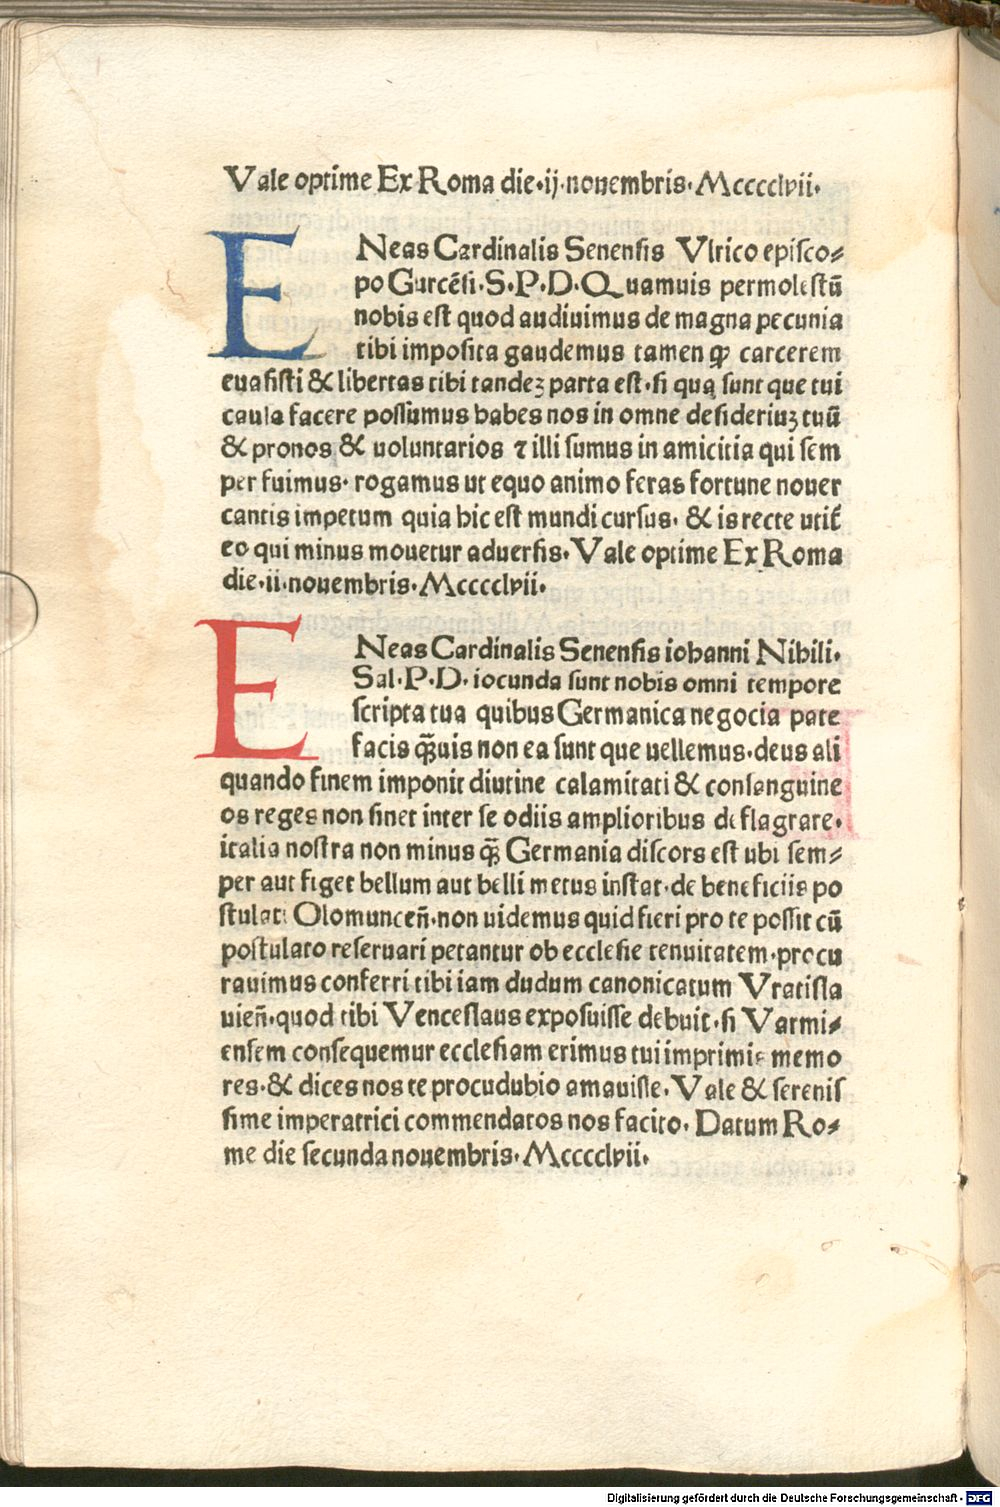 Vale optime Ex Roma die·ij·nouembris·Mcccclvii·
ENeas Cardinalis Senensis Vlrico episco⸗
po Gurcēsi·S·P·D·Quamuis permolestū
nobis est quod audiuimus de magna pecunia
tibi imposita gaudemus tamen ꝙ carcerem
euasisti & libertas tibi tandeꝫ parta est·si qua sunt que tui
causa facere possumus habes nos in omne desideriuꝫ tuū
& pronos & uoluntarios ⁊ illi sumus in amicitia qui sem
per fuimus· rogamus ut equo animo feras fortune nouer
cantis impetum quia hic est mundi cursus· & is recte utit̉
eo qui minus mouetur aduersis·Vale optime Ex Roma
die·ii·nouembris·Mcccclvii·
ENeas Cardinalis Senensis iohanni Nihili·
Sal·P·D·iocunda sunt nobis omni tempore
scripta tua quibus Germanica negocia pate
facis q̃uis non ea sunt que uellemus·deus ali
quando finem imponit diutine calamitati & consanguine
os reges non sinet inter se odiis amplioribus deflagrare·
italia nostra non minus q̃ Germania discors est ubi sem⸗
per aut figet bellum aut belli metus instat·de beneficiis po
stulati Olomunceñ·non uidemus quid fieri pro te possit cū
postulato reseruari petantur ob ecclesie tenuitatem·procu
rauimus conferri tibi iam dudum canonicatum Vratisla
uieñ·quod tibi Venceslaus exposuisse debuit·si Varmi⸗
ensem consequemur ecclesiam erimus tui imprimis memo
res·& dices nos te procudubio amauisse·Vale & serenis
sime imperatrici commendatos nos facito·Datum Ro⸗
me die secunda nouembris·Mcccclvii·
Digitalisierung gefördert durch die Deutsche Forschungsgemeinschaft - DFG